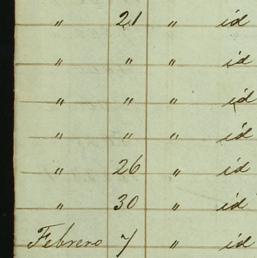 " 21 " id
" " " id
" " " id
" " " id
" 26 " id
" 30 " id
Febrero 7 " id